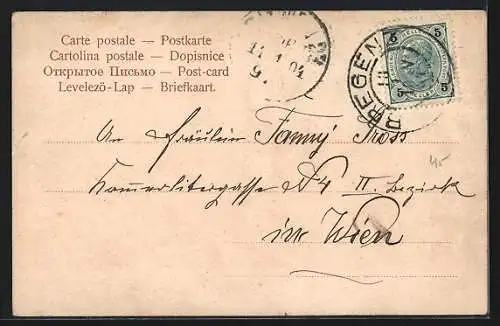 Carte postale — Postkarte
Cartolina postale — Dopisnice
Открытое Письмо — Post-card
Levelező-Lap — Briefkaart.
5 5
5 5
BREGEN
An Fräulein Fanny Pross
No 4 II. Bezirk
in Wien
45